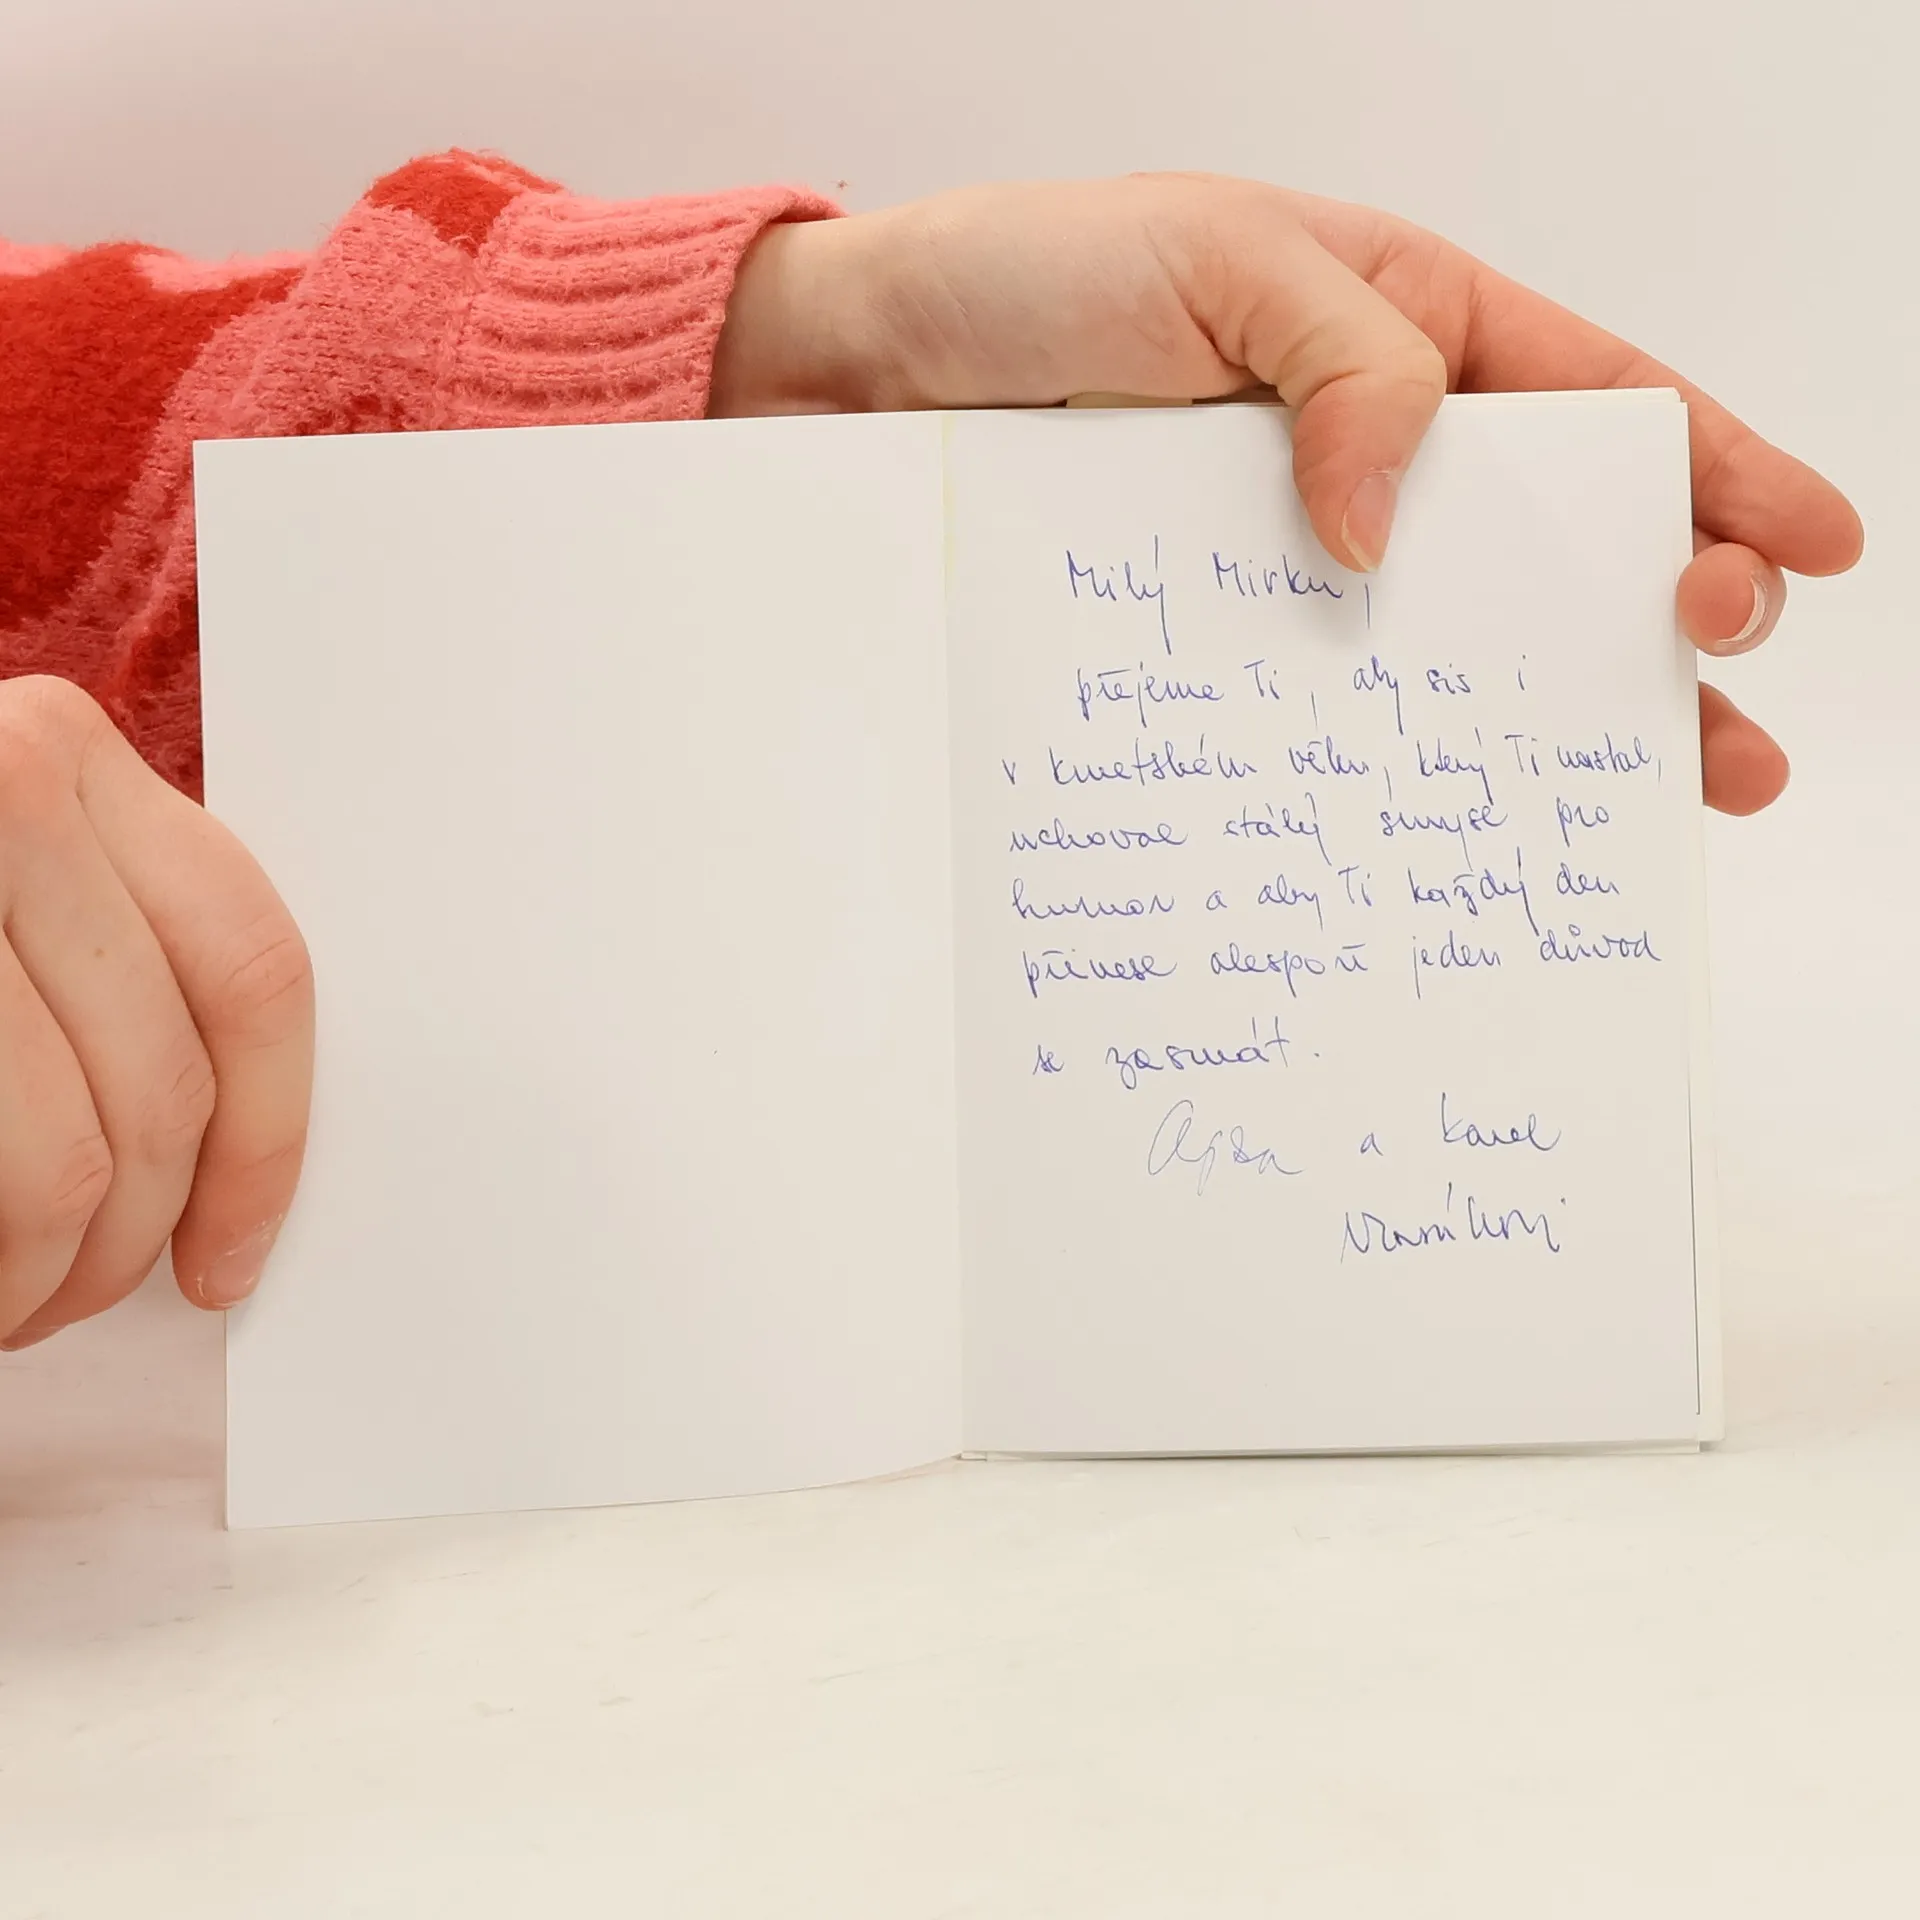 Milý Mirku,
přejeme Ti, aby sis i
v kmetském věku, který Ti nastal,
uchoval stálý smysl pro
humor a aby Ti každý den
přinesl alespoň jeden důvod
se zasmát.
a Karel